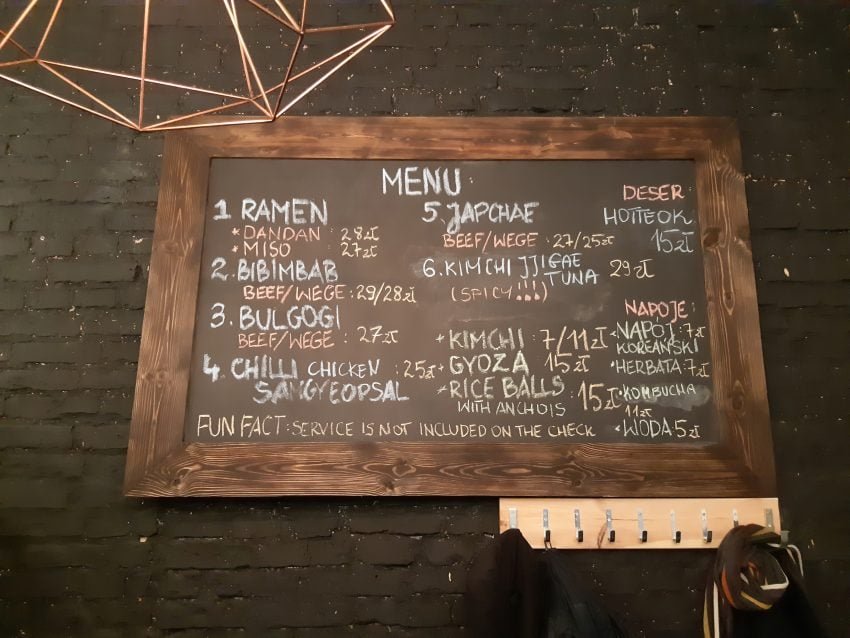 MENU:
1 RAMEN
* DANDAN : 28zł
* MISO : 27zł
2. BIBIMBAB
BEEF/WEGE : 29/28zł
3. BULGOGI
BEEF/WEGE : 27zł
4. CHILLI CHICKEN : 25zł
SANGYEOPSAL
5. JAPCHAE
BEEF/WEGE : 27/25zł
6. KIMCHI JJIGAE
TUNA 29zł
(SPICY!!!)
* KIMCHI : 7/11zł
* GYOZA : 15zł
* RICE BALLS : 15zł
WITH ANCHOIS
DESER :
HOTTEOK
15zł
NAPOJE :
* NAPÓJ : 7zł
KOREAŃSKI
* HERBATA : 7zł
* KOMBUCHA
11zł
* WODA : 5zł
FUN FACT : SERVICE IS NOT INCLUDED ON THE CHECK